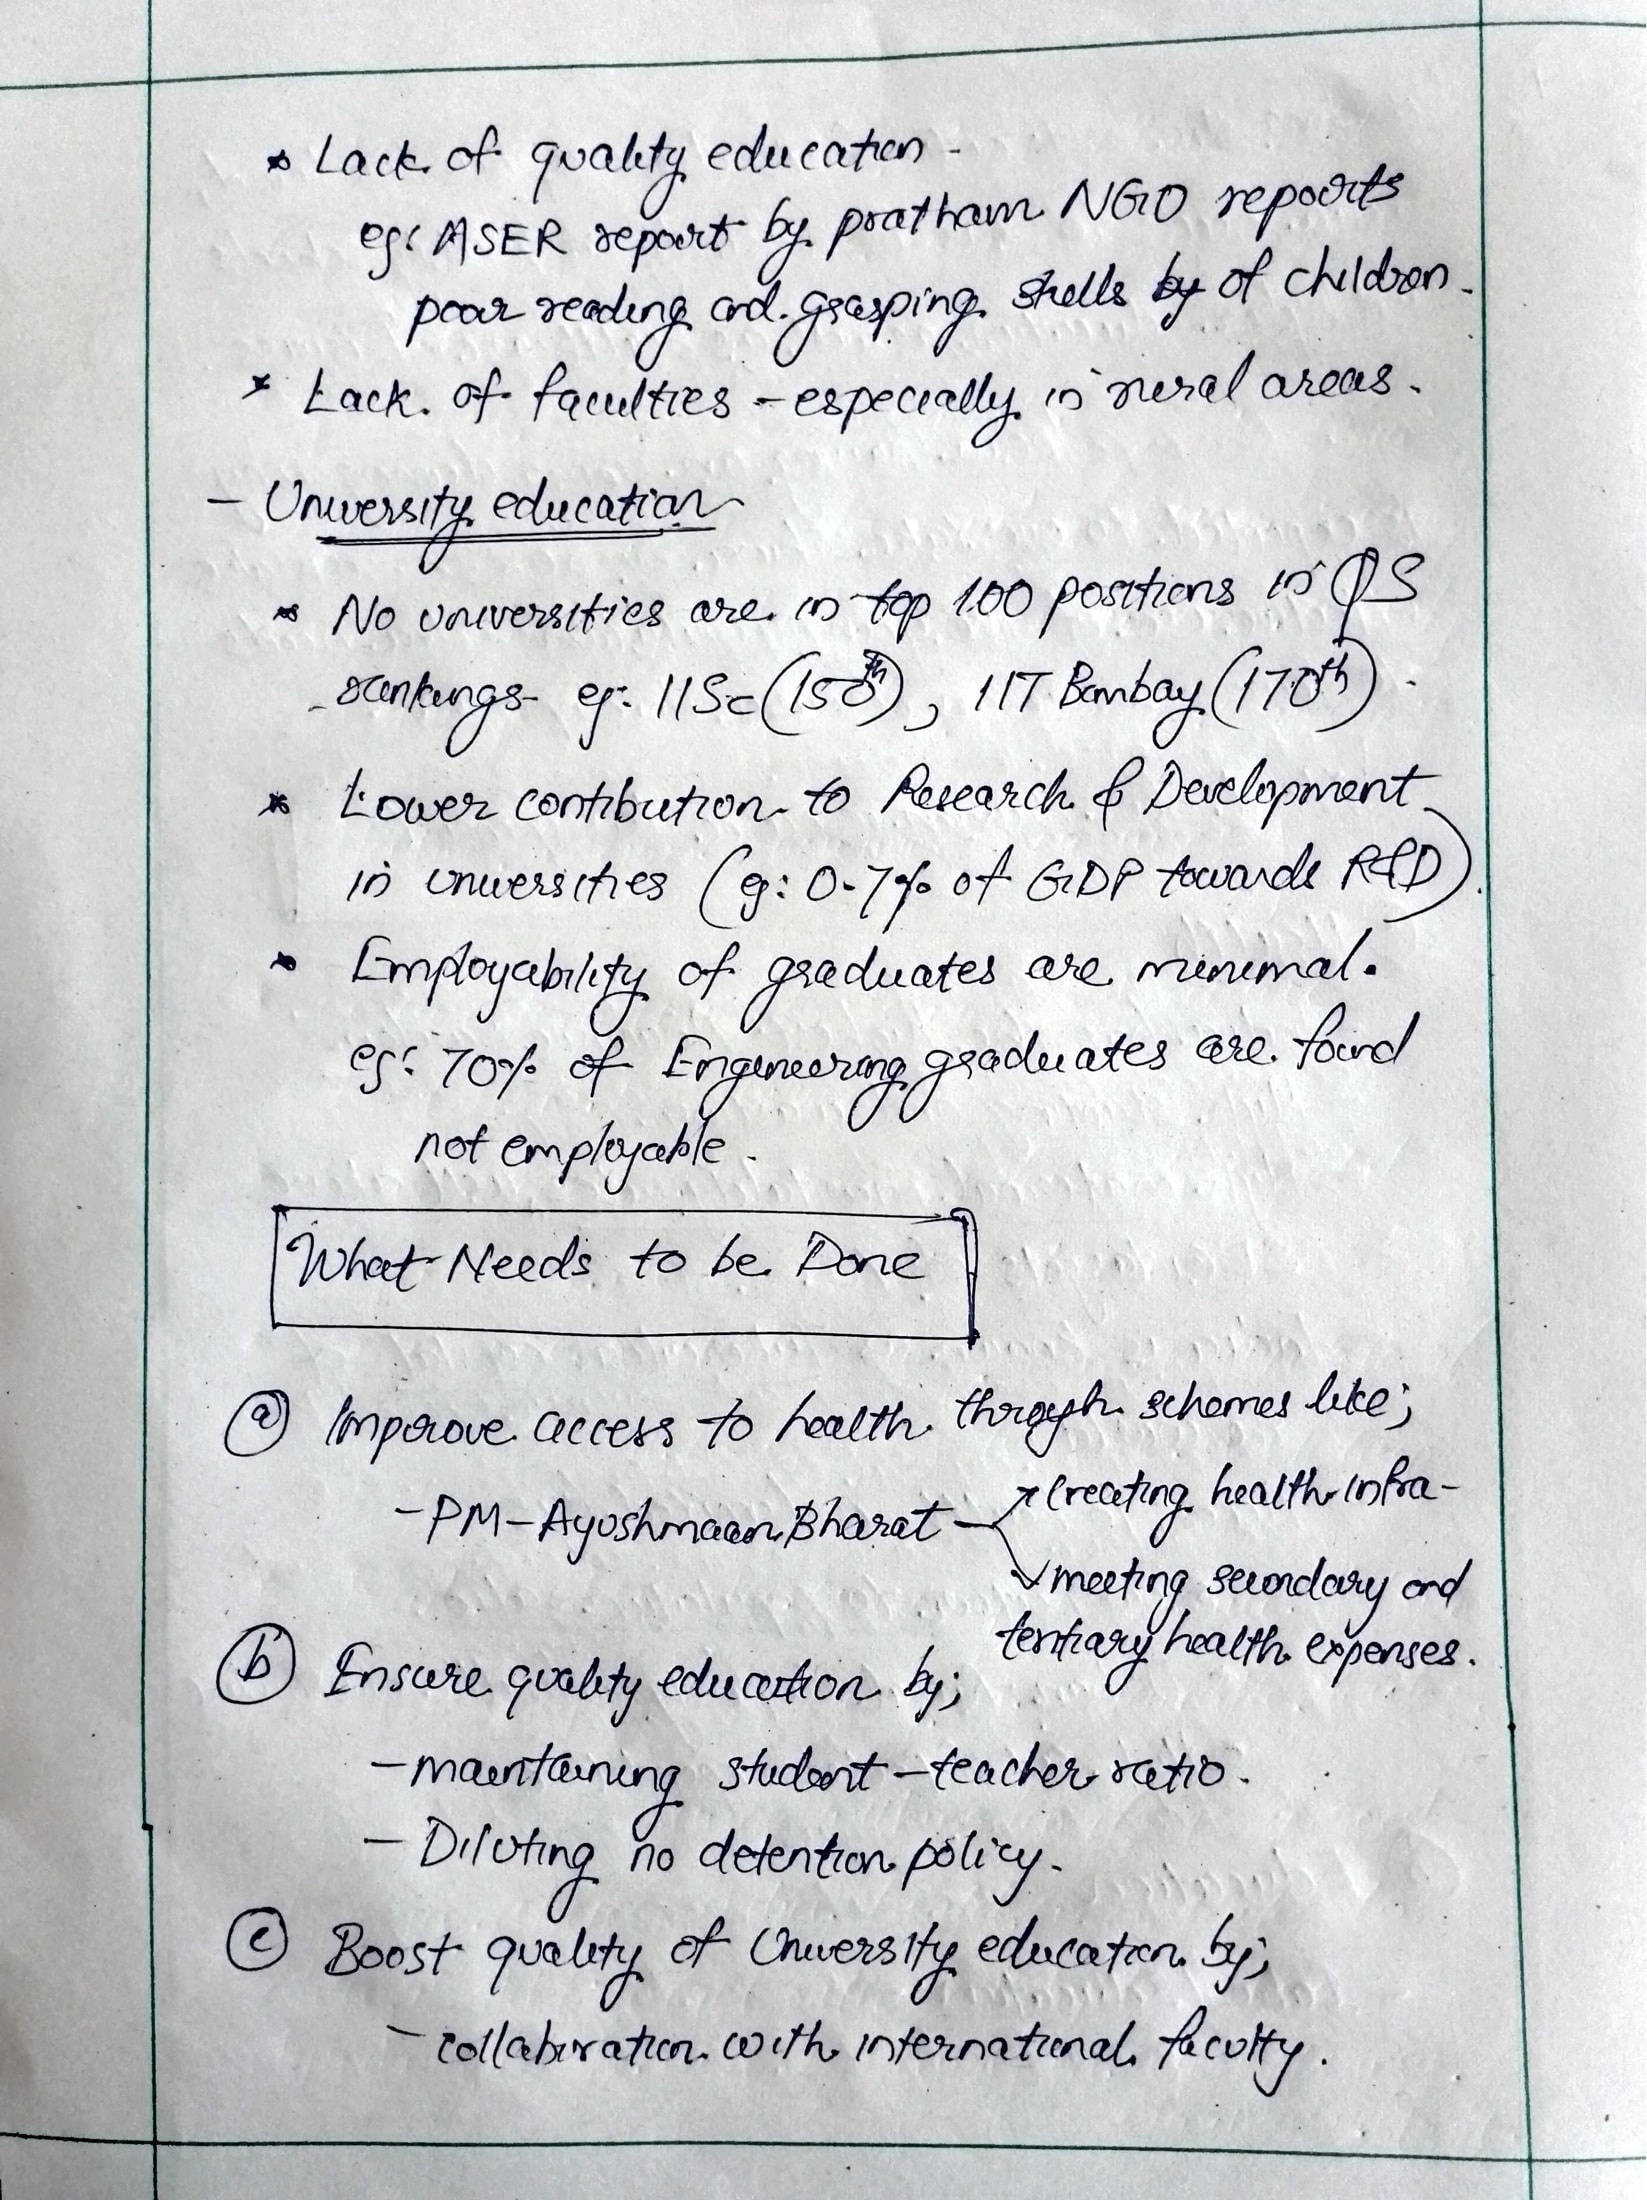 * Lack of quality education -
eg: ASER report by pratham NGO reports
poor reading and grasping skills by of children.
* Lack of faculties - especially in rural areas.
- University education
* No universities are in top 100 positions in QS
rankings eg: IISc (150th), IIT Bombay (170th).
* Lower contibution to Research & Development
in universities (eg: 0.7% of GDP towards R&D).
* Employability of graduates are minimal.
eg: 70% of Engineering graduates are found
not employable.
What Needs to be Done
(a) Improve access to health through schemes like;
- PM-Ayushmaan Bharat → Creating health infra-
→ meeting secondary and
tertiary health expenses.
(b) Ensure quality education by;
- maintaining student-teacher ratio.
- Diluting no detention policy.
(c) Boost quality of University education by;
- collaboration with international faculty.